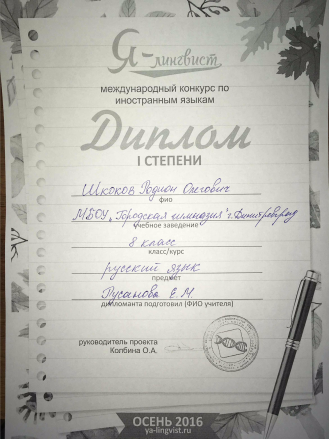 Я-лингвист
международный конкурс по
иностранным языкам
Диплом
I СТЕПЕНИ
Шкоков Родион Олегович
ФИО
МБОУ „Городская гимназия" г. Димитровград
учебное заведение
8 класс
класс/курс
русский язык
предмет
Русанова Е.М.
дипломанта подготовил (ФИО учителя)
руководитель проекта
Колбина О.А.
ОСЕНЬ 2016
ya-lingvist.ru